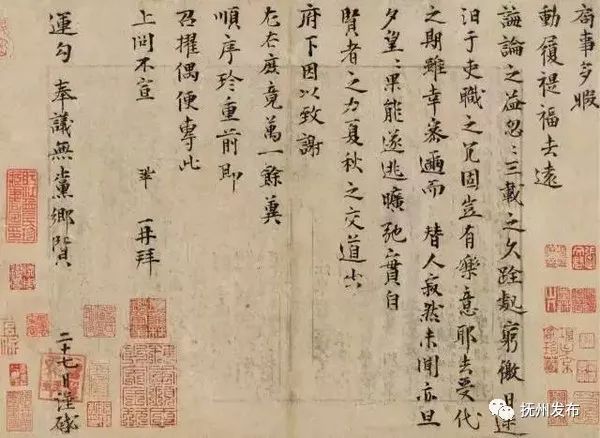 局事多暇
動履禔福去遠
誨論之益忽〻三載之久跧處窮徼日迷
汩于吏職之冗固豈有樂意耶去受代
之期雖幸密邇而替人寂然未聞亦旦
夕望〻果能遂逃曠弛實自
賢者之力夏秋之交道出
府下因以致謝
左右庶竟萬一餘冀
順序珍重前即
召擢偶便專此
上問不宣 鞏 再拜
運勾奉議無黨鄉賢 二十七日謹啟
抚州发布